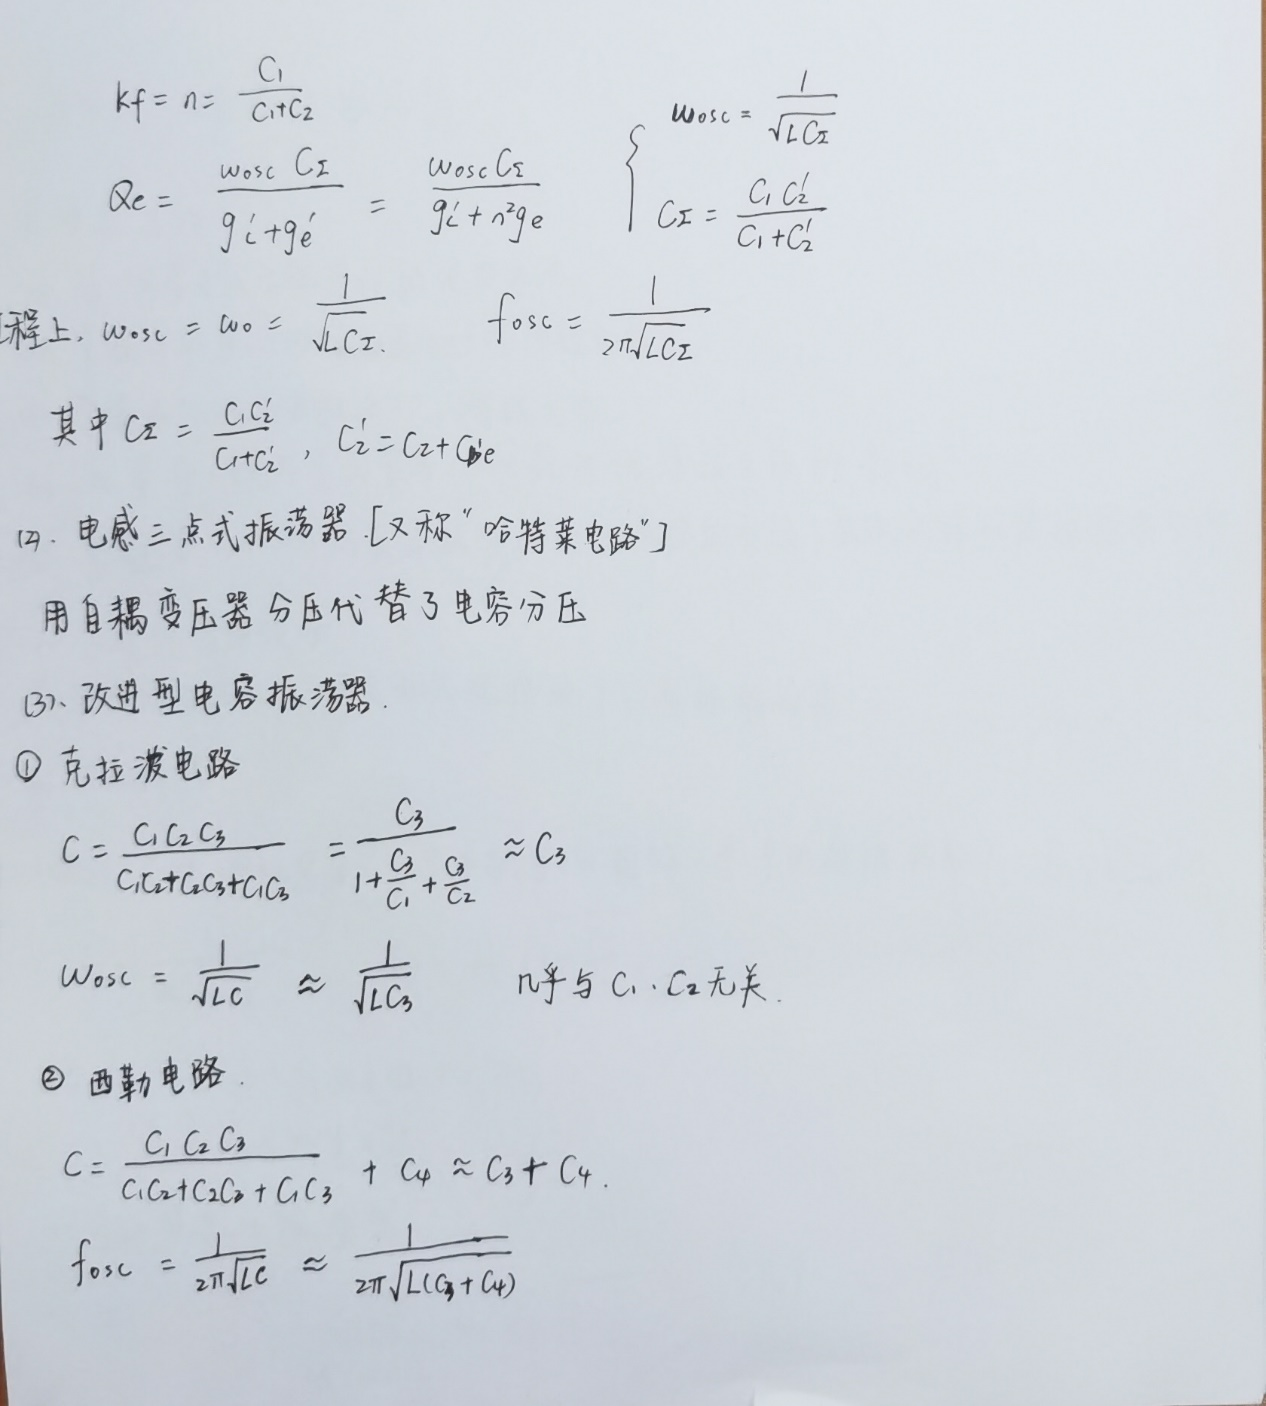 kf = n = C₁/(C₁+C₂)
ωosc = 1/√(LC_Σ)
Qe = ωosc C_Σ/(gi′+ge′) = ωosc C_Σ/(gi′+n²ge)
C_Σ = C₁C₂′/(C₁+C₂′)
工程上, ωosc = ω₀ = 1/√(LC_Σ). fosc = 1/(2π√(LC_Σ))
其中 C_Σ = C₁C₂′/(C₁+C₂′) , C₂′ = C₂ + Cb′e
(2). 电感三点式振荡器.[又称“哈特莱电路”]
用自耦变压器分压代替了电容分压
(3)、改进型电容振荡器.
① 克拉泼电路
C = C₁C₂C₃/(C₁C₂+C₂C₃+C₁C₃) = C₃/(1+C₃/C₁+C₃/C₂) ≈ C₃
ωosc = 1/√(LC) ≈ 1/√(LC₃) 几乎与 C₁、C₂ 无关.
② 西勒电路.
C = C₁C₂C₃/(C₁C₂+C₂C₃+C₁C₃) + C₄ ≈ C₃ + C₄.
fosc = 1/(2π√(LC)) ≈ 1/(2π√(L(C₃+C₄)))